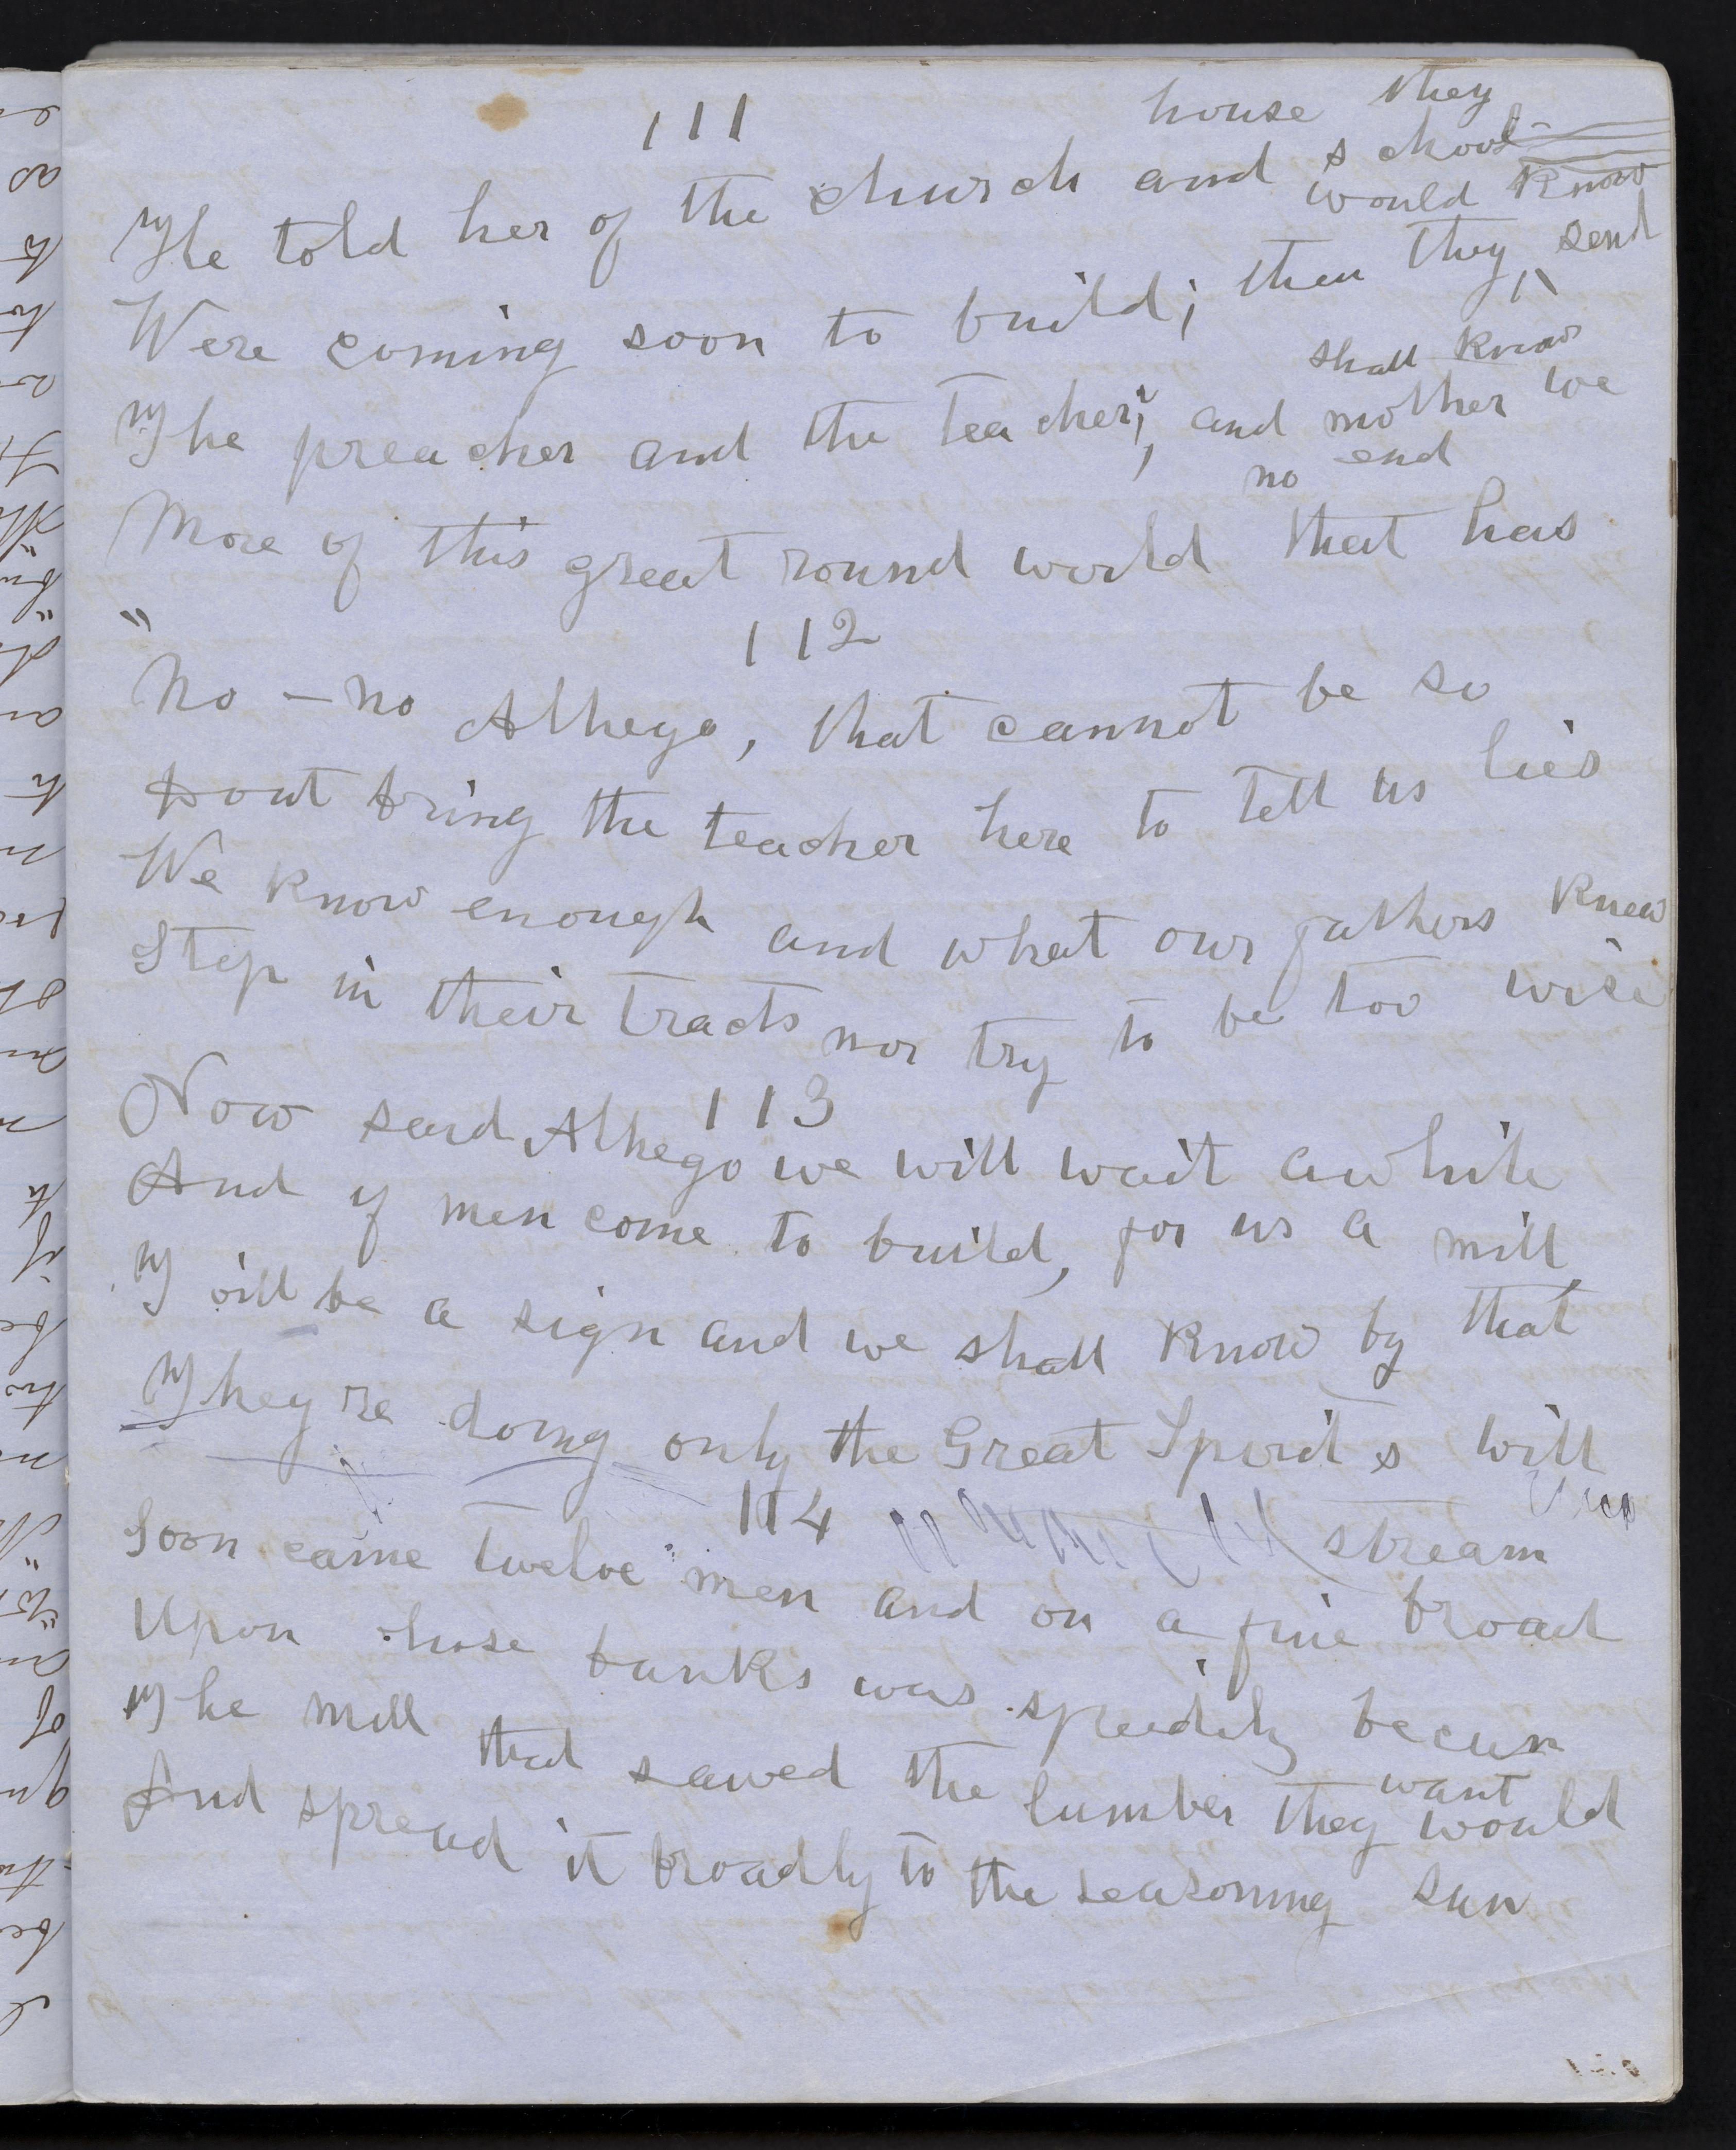 111
house they
He told her of the church and school
would know
Were coming soon to build; then they send
The preacher and the teacher; and mother we
shall know
More of this great round world that has
no end
112
"No - no Athego, that cannot be so
Dont bring the teacher here to tell us lies
We know enough and what our fathers knew
Step in their tracts nor try to be too wise
113
Now said Athego we will wait awhile
And if men come to build, for us a mill
T will be a sign and we shall know by that
They re doing only the Great Spirit s will
114
stream
Soon came twelve men and on a fine broad
Upon whose banks was speedily becun
The mill that sawed the lumber they would
want
And spread it broadly to the seasoning sun